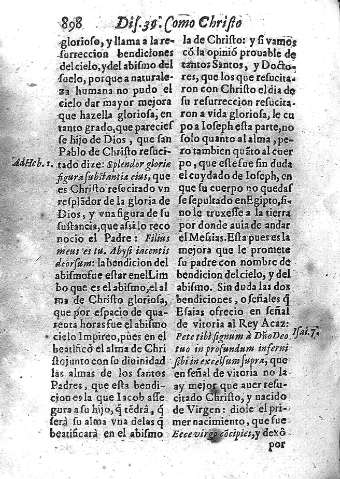 898 Dis. 35. Como Christo
glorioso, y llama a la re-
surreccion bendiciones
del cielo, y del abismo del
suelo, porque a naturale-
za humana no pudo el
cielo dar mayor mejora
que hazella gloriosa, en
tanto grado, que pareciesse
hijo de Dios, que san
Pablo de Christo resuci-
tado dize: Splendor gloriæ
figura substantiæ eius, que
es Christo resucitado vn
resplãdor de la gloria de
Dios, y vna figura de su
sustancia, que assi lo reco
nocio el Padre: Filius
meus es tu. Abysi iacentis
deorsum: la bendicion del
abismo fue estar en el Lim
bo que es el abismo, el al
ma de Christo gloriosa,
que por espacio de qua-
renta horas fue el abismo
cielo Impireo, pues en el
beatificò el alma de Chri
sto junto con su diuinidad
las almas de los santos
Padres, que esta bendi-
cion es la que Iacob asse
gura a su hijo, q̃ tẽdrà, q̃
serà su alma vna de las q̃
beatificarà en el abismo
Ad Heb. 1.
la de Christo: y si vamos
cõ la opiniõ prouable de
tantos Santos, y Docto-
res, que los que resucita-
ron con Christo el dia de
su resurreccion resucita-
ron a vida gloriosa, le cu
po a Ioseph esta parte, no
solo quanto al alma, pe-
ro tambien quãto al cuer
po, que este fue sin duda
el cuydado de Ioseph, en
que su cuerpo no quedas
se sepultado en Egipto, si-
no le truxesse a la tierra
por donde auia de andar
el Mesias. Esta pues es la
mejora que le promete
su padre en nombre de
bendicion del cielo, y del
abismo. Sin duda las dos
bendiciones, o señales q̃
Esaias ofrecio en señal
de vitoria al Rey Acaz:
Pete tibi signum à Dño Deo
tuo in profundum inferni
sibi in excelsum supra, que
en señal de vitoria no la
ay mejor que auer resu-
citado Christo, y nacido
de Virgen: diole el pri-
mer nacimiento, que fue
Ecce virgo cõcipies, y dexô
por
Isai. 7.